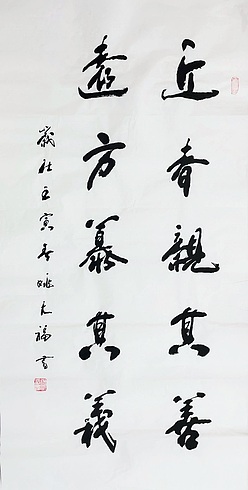 近者親其善
遠方慕其義
歲壬寅春姚福書